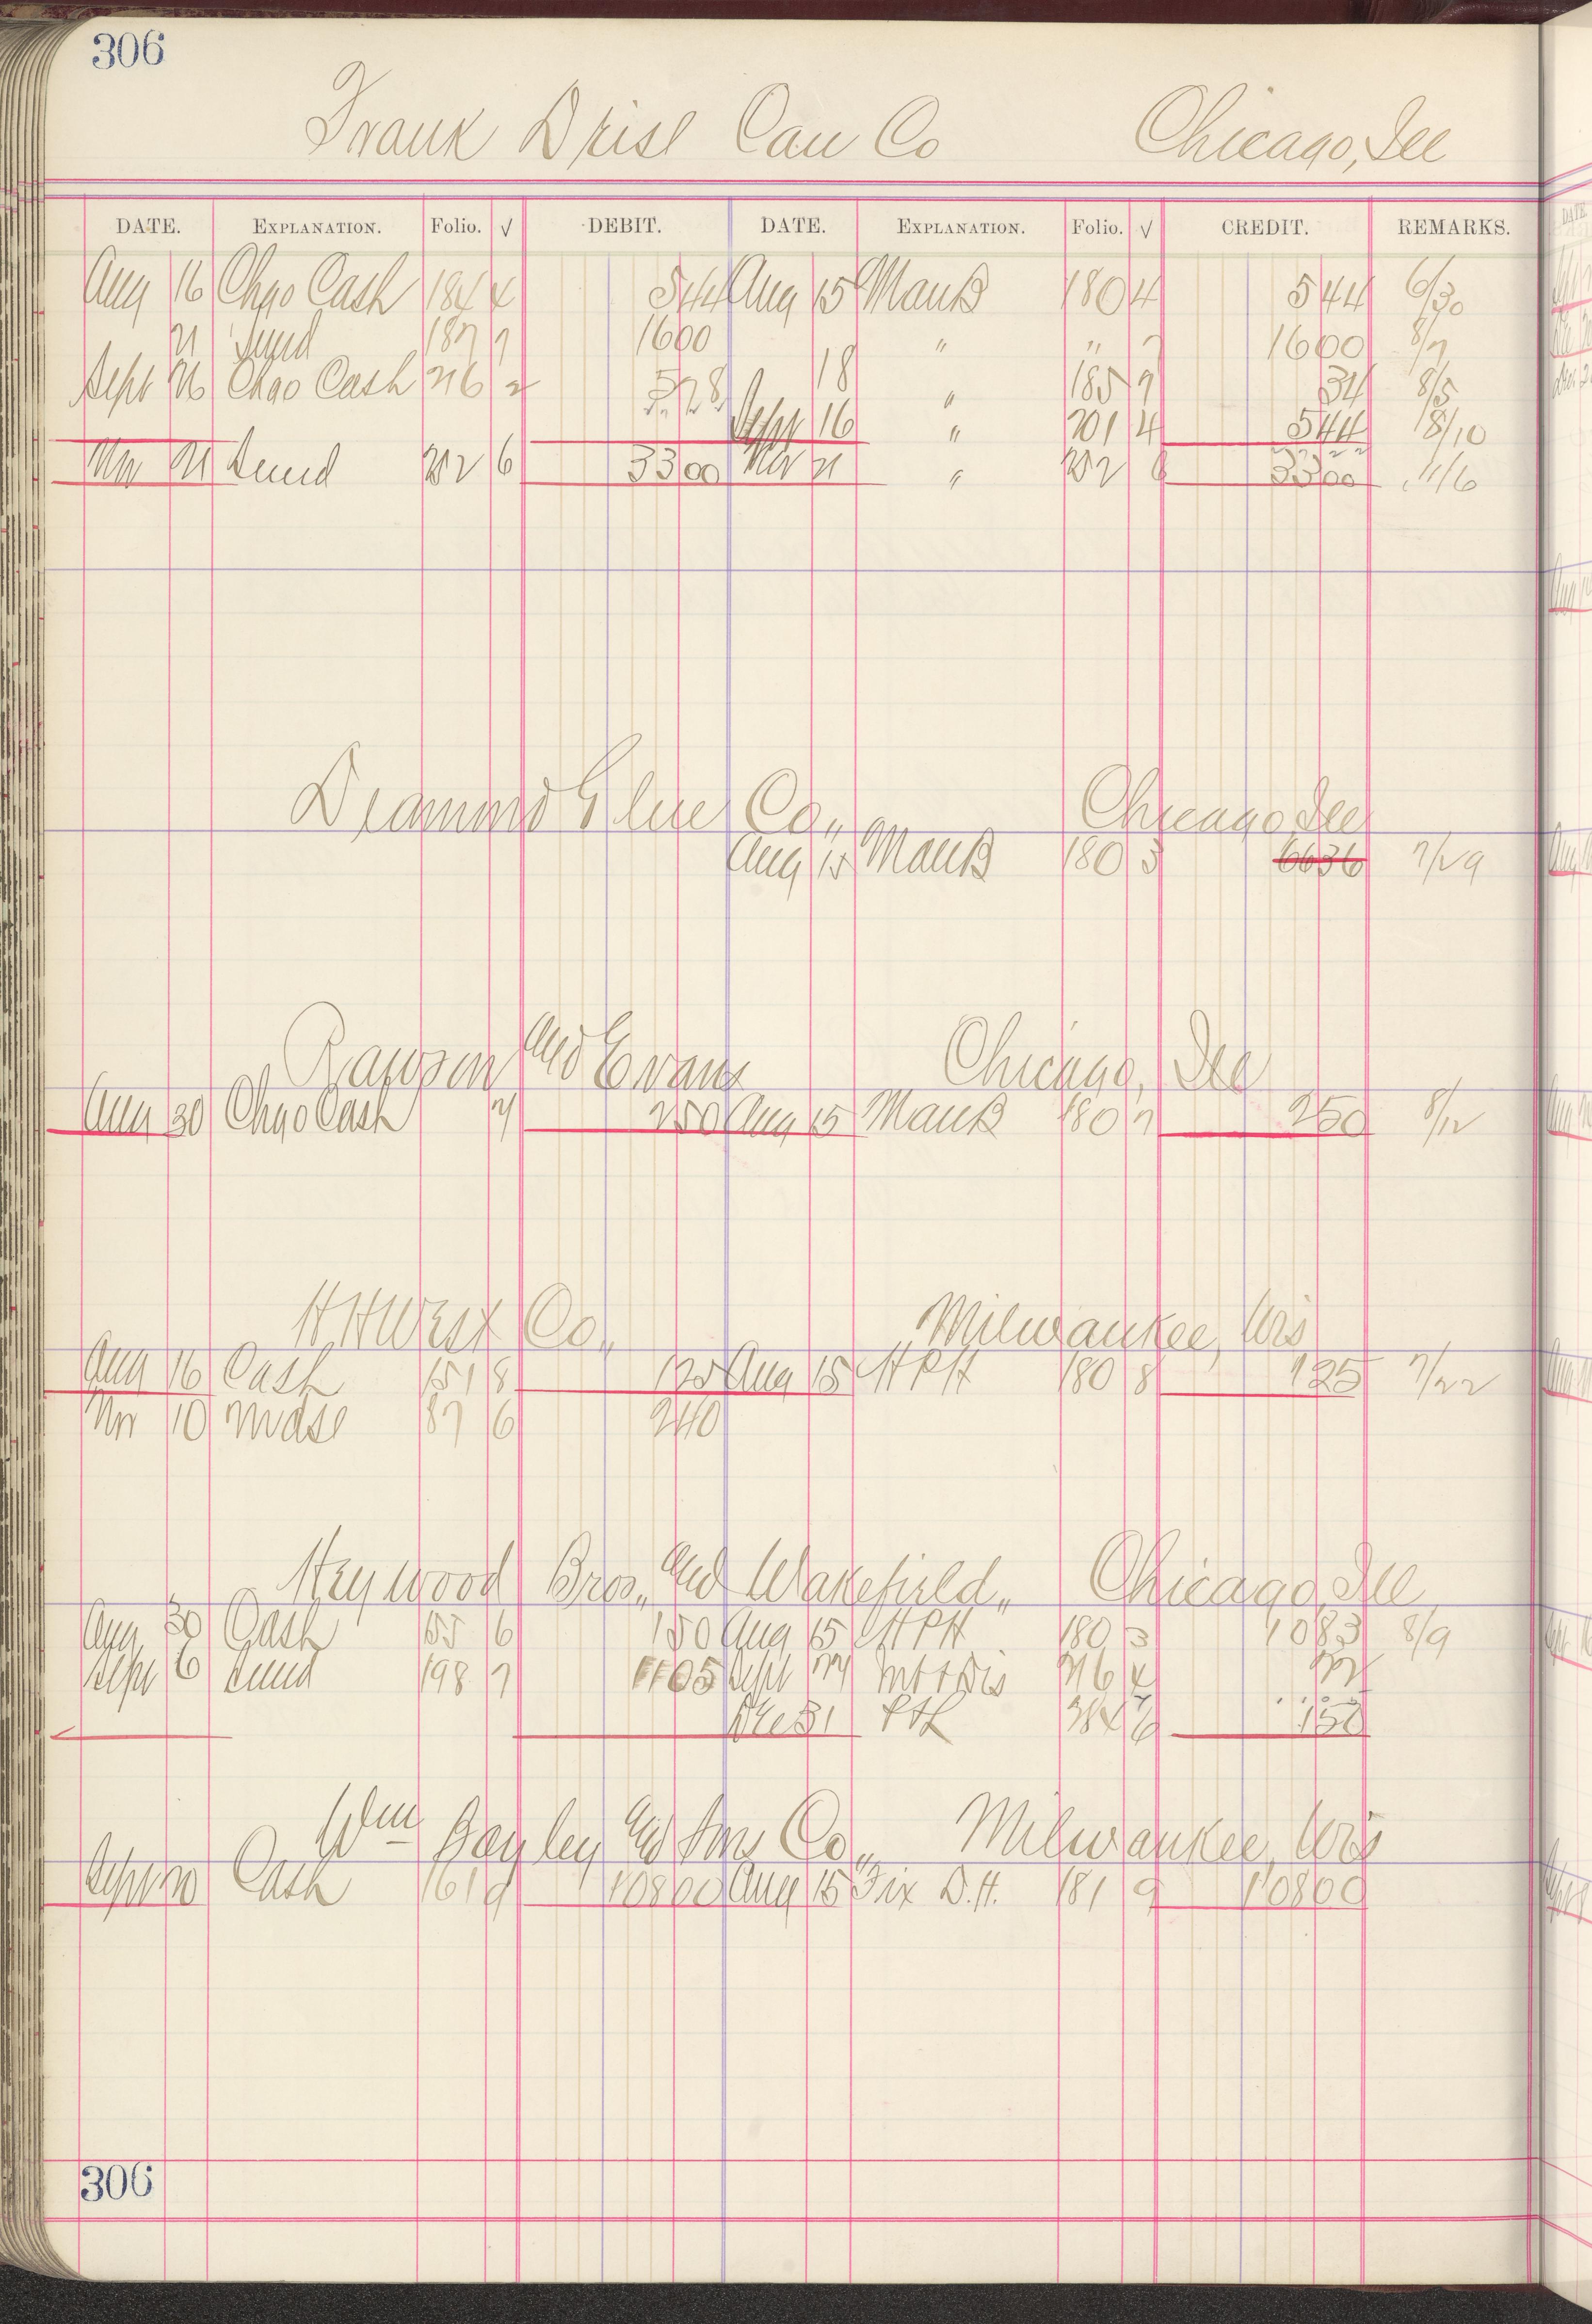 306
Frank Drisl Can Co Chicago, Ill
DATE. EXPLANATION. Folio. √ DEBIT. DATE. EXPLANATION. Folio. √ CREDIT. REMARKS.
Aug 16 Chgo Cash 184 4 544 Aug 15 Manß 180 4 544 6/30
21 187 7 1600 " " 7 1600 8/7
Sept 26 Chgo Cash 216 2 578 18 " 185 7 34 8/5
Sept 16 " 201 4 544 8/10
Nov 21 252 6 3300 Nov 21 " 252 6 3300 11/6
Diamond Glue Co,, Chicago, Ill
Aug 15 Manß 180 3 6636 7/29
Rawson And Evans Chicago, Ill
Aug 30 Chgo Cash 7 250 Aug 15 Manß 180 7 250 8/12
H H West Co,, Milwaukee, Wis
Aug 16 Cash 151 8 125 Aug 15 H P H 180 8 125 7/22
Nov 10 Mdse 87 6 240
Heywood Bros,, And Wakefield,, Chicago, Ill
Aug 30 Cash 155 6 150 Aug 15 H P H 180 3 1083 8/9
Sept 6 198 7 1105 Sept 216 4 22
Dec 31 6 150
Wm Bayley And Sons Co,, Milwaukee, Wis
Sept 20 Cash 161 9 10800 Aug 15 Fix D.H. 181 9 10800
306